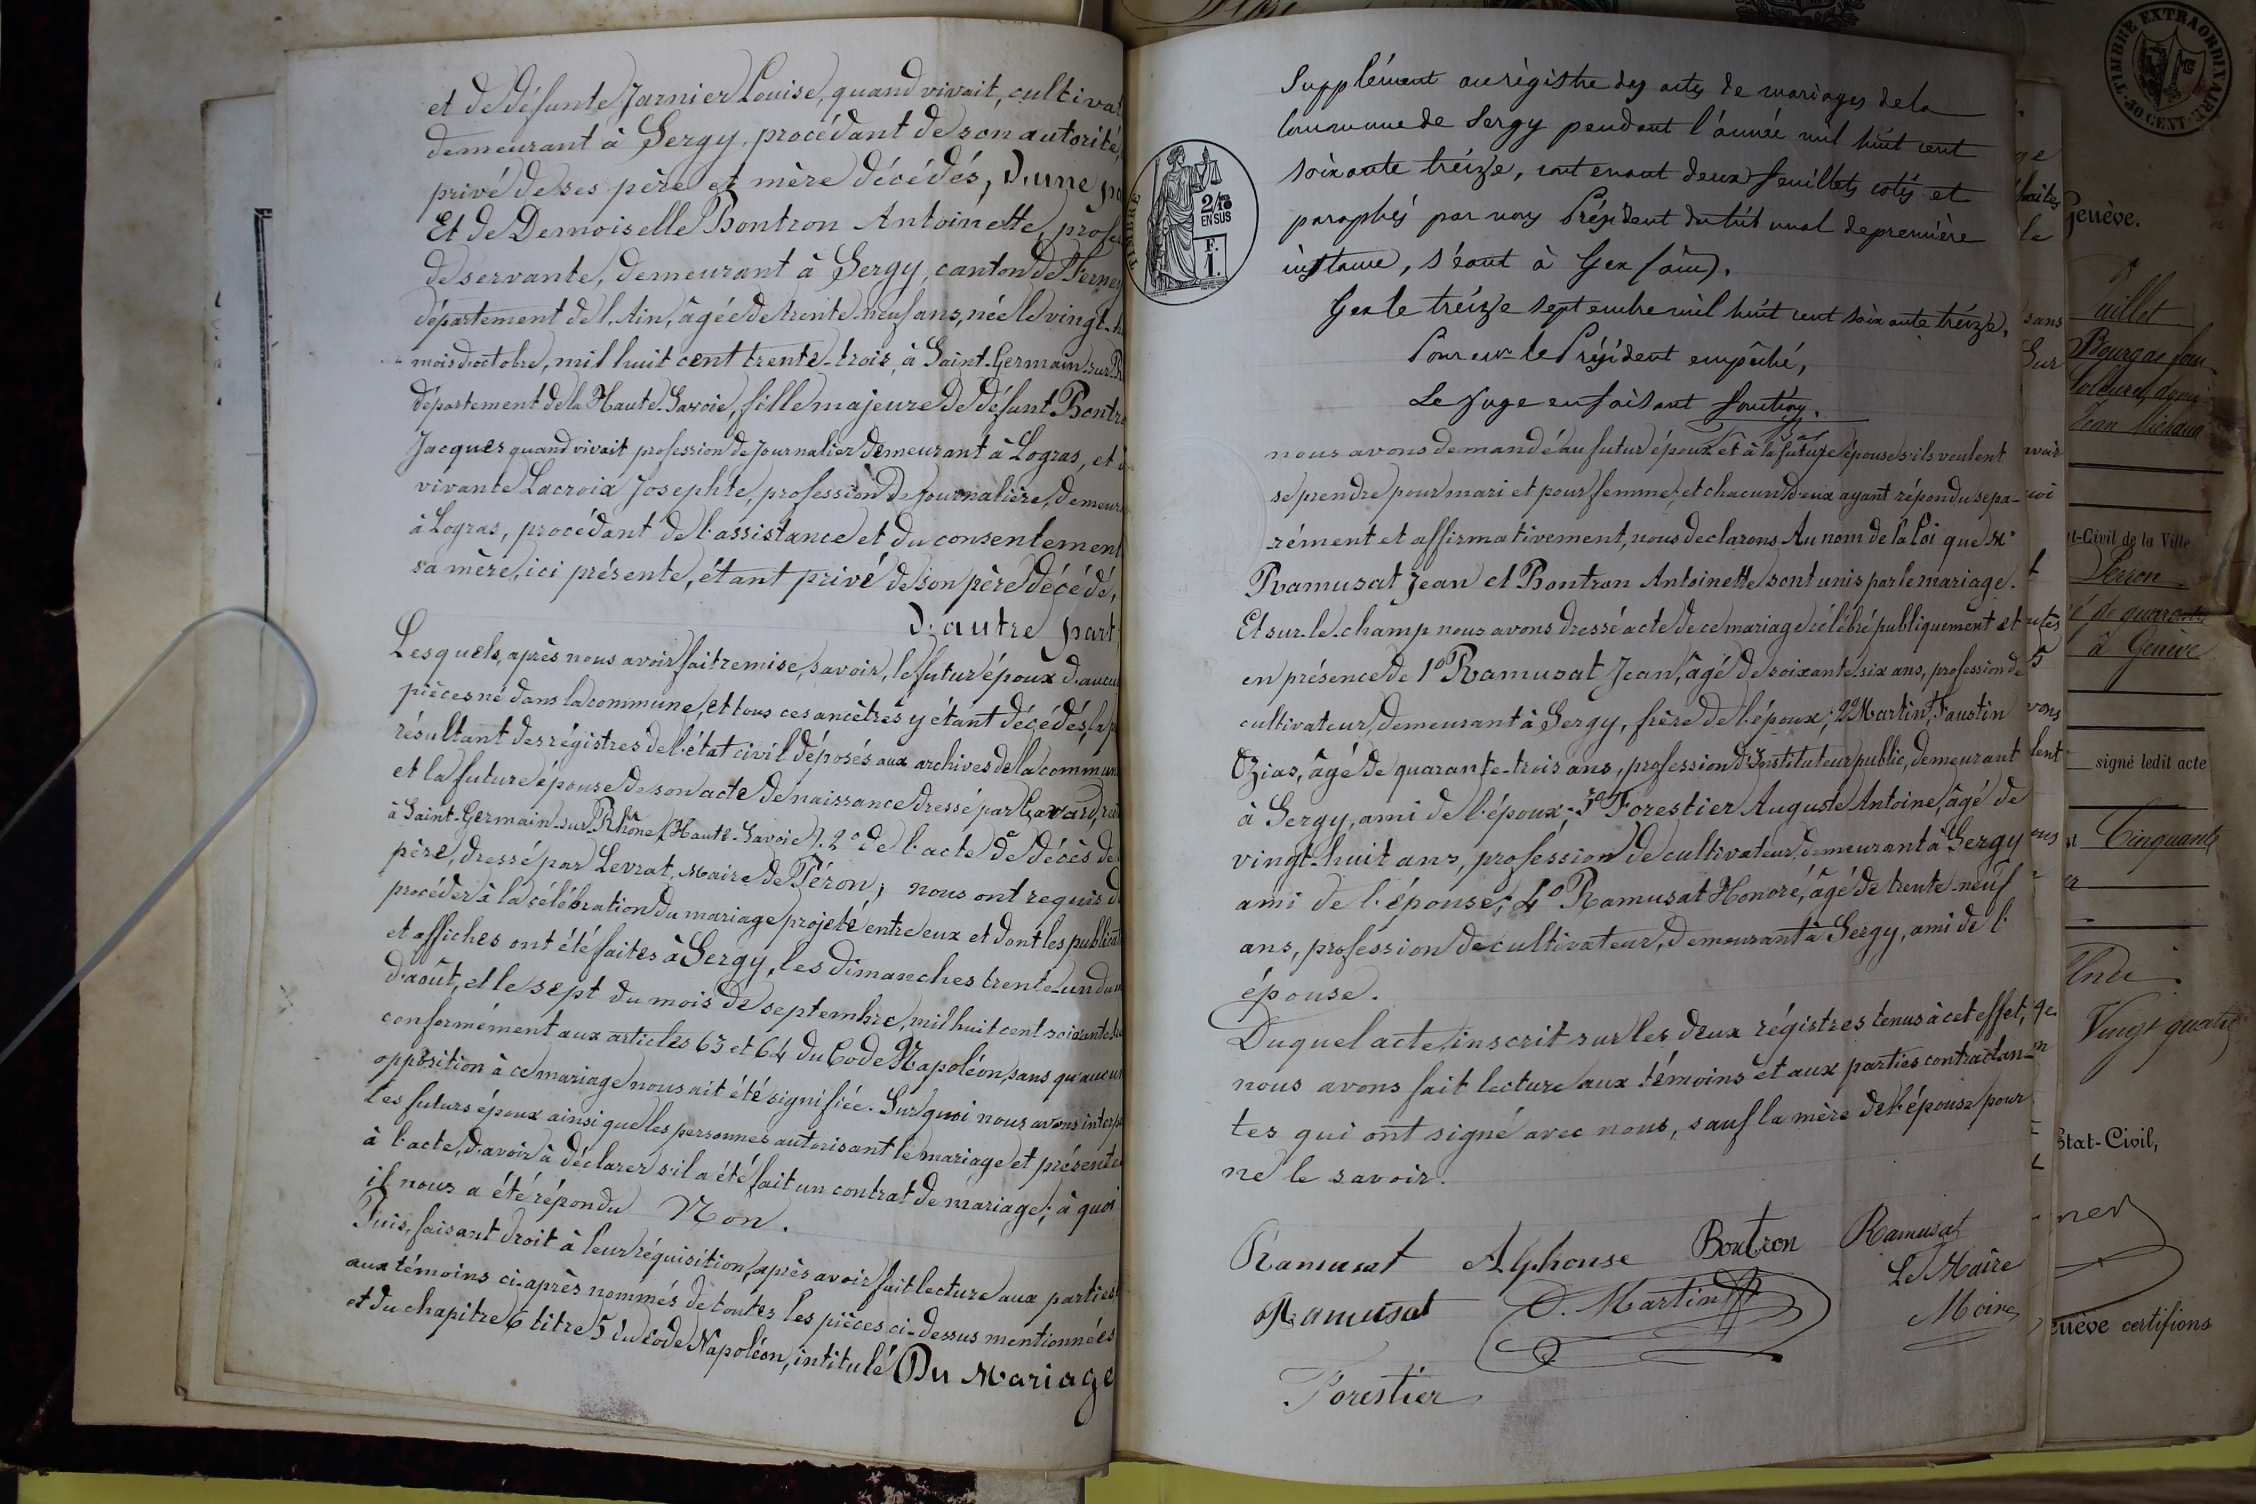 et de défunte Jarnier Louise, quand vivait,
demeurant à Sergy, procédant de son autorité,
privé de ses père et mère décédés, d'une
Et de Demoiselle Bontron Antoinette,
de servante, demeurant à Sergy, canton de
département de l'Ain, âgée de trente-neuf ans, née le vingt-
mois d'octobre, mil huit cent trente-trois, à Saint-Germain-sur-
département de la Haute-Savoie, fille majeure de défunt
Jacques quand vivait profession de journalier demeurant à Logras, et
vivante Lacroix Josephte, profession de journalière,
à Logras, procédant de l'assistance et du consentement
sa mère, ici présente, étant privé de son père décédé,
d'autre part
Lesquels, après nous avoir fait remise, savoir, le futur époux
pièces né dans la commune, et tous ces ancêtres y étant décédés,
résultant des régistres de l'état civil déposés aux archives de la
et la future épouse de son acte de naissance dressé par
à Saint-Germain-sur-Rhône (Haute-Savoie). 2º de l'acte de décès
père, dressé par Levrat, Maire de Péron; nous ont requis
procéder à la célébration du mariage projeté entre eux et dont les
et affiches ont été faites à Sergy, les dimanches trente-un
d'août, et le sept du mois de septembre, mil huit cent
conformément aux articles 63 et 64 du Code Napoléon, sans
opposition à ce mariage nous ait été signifiée. Sur quoi nous avons
les futurs époux ainsi que les personnes autorisant le mariage et
à l'acte, d'avoir à déclarer s'il a été fait un contrat de mariage; à quoi
il nous a été répondu Non.
Puis, faisant droit à leur réquisition, après avoir fait lecture aux parties
aux témoins ci-après nommés de toutes les pièces ci-dessus mentionnées
et du chapitre 6 titre 5 du Code Napoléon, intitulé Du Mariage
Supplément au régistre des actes de mariages de la
Commune de Sergy pendant l'année mil huit cent
soixante treize, contenant deux feuillets cotés et
paraphés par nous Président du tribunal de première
instance, séant à Gex (ain).
Gex le treize septembre mil huit cent soixante treize,
Pour le Président empêché,
Le Juge en faisant fonction.
nous avons demandé au futur époux et à la future épouse s'ils veulent
se prendre pour mari et pour femme, et chacun d'eux ayant répondu sepa-
-rément et affirmativement, nous declarons Au nom de la Loi que
Ramusat Jean et Bontron Antoinette sont unis par le mariage.
Et sur-le-champ nous avons dressé acte de ce mariage célébré publiquement et
en présence de 1º Ramusat Jean, âgé de soixante six ans, profession de
cultivateur, demeurant à Sergy, frère de l'époux; 2º Martin, Faustin
Ozias, âgé de quarante-trois ans, profession d'Instituteur public, demeurant
à Sergy, ami de l'époux; 3º Forestier Auguste Antoine, âgé de
vingt-huit ans, profession de cultivateur, demeurant à Sergy
ami de l'épouse; 4º Ramusat Honoré, âgé de trente-neuf
ans, profession de cultivateur, demeurant à Sergy, ami de l'
épouse.
Duquel acte, inscrit sur les deux régistres tenus à cet effet,
nous avons fait lecture aux témoins et aux parties contractan-
tes qui ont signé avec nous, sauf la mère de l'épouse pour
ne le savoir.
Ramusat Alphonse Boutron Ramusat
Le Maire
Ramusat O. Martin
Moine
Forestier
TIMBRE
2/10
EN SUS
F.
I.
TIMBRE EXTRAORDINAIRE
50 CENT.
Genève.
Juillet
Jean
t-Civil de la Ville
Perron
é de quarante
à Genève
signé ledit acte
Cinquante
Vingt quatre
Etat-Civil,
enève certifions